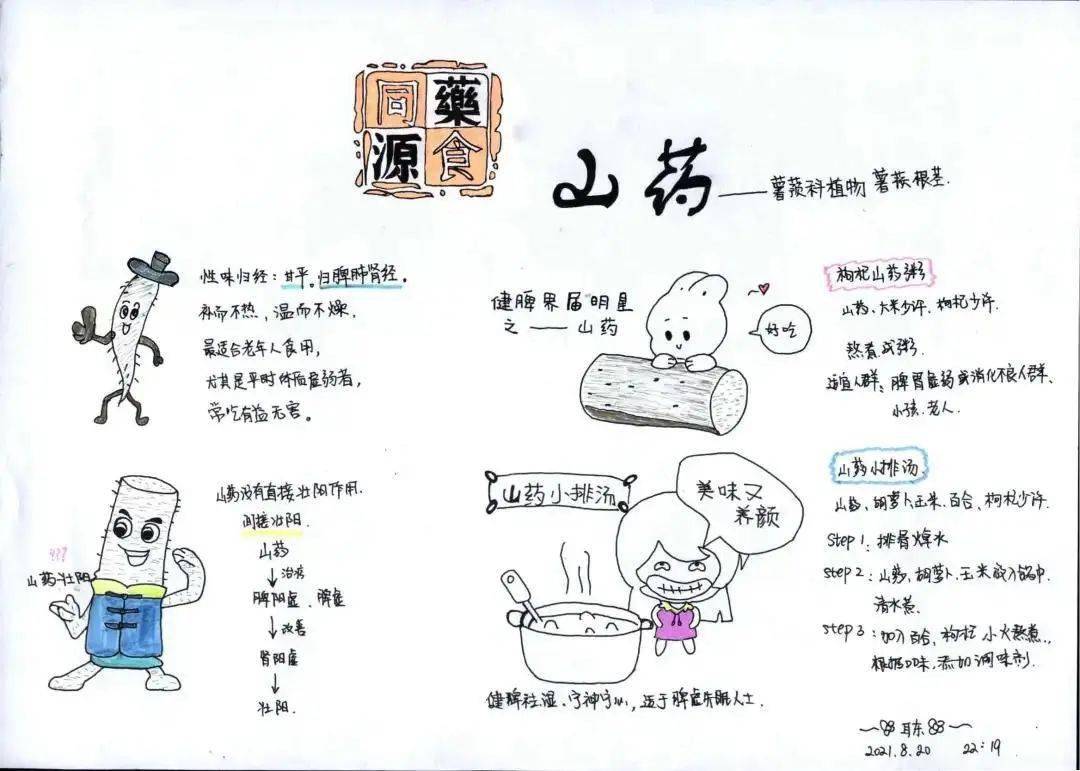 藥食同源
山药——薯蓣科植物 薯蓣根茎.
性味归经：甘平。归脾肺肾经。
补而不热，温而不燥，
最适合老年人食用，
尤其是平时体质虚弱者，
常吃有益无害。
健脾界届明星
之——山药
好吃
枸杞山药粥
山药、大米少许、枸杞少许.
熬煮成粥.
适宜人群：脾胃虚弱或消化不良人群、
小孩.老人.
山药没有直接壮阳作用.
间接壮阳.
山药
治疗
脾阳虚、脾虚
改善
肾阳虚
壮阳.
???
山药壮阳
山药小排汤
美味又
养颜
健脾祛湿、宁神宁心，适于脾虚失眠人士.
山药小排汤
山药、胡萝卜玉米、百合、枸杞少许.
Step 1：排骨焯水
Step 2：山药、胡萝卜、玉米放入锅中.
清水煮.
Step 3：加入百合、枸杞 小火熬煮.,
根据口味，添加调味剂.
2021.8.20 22:19